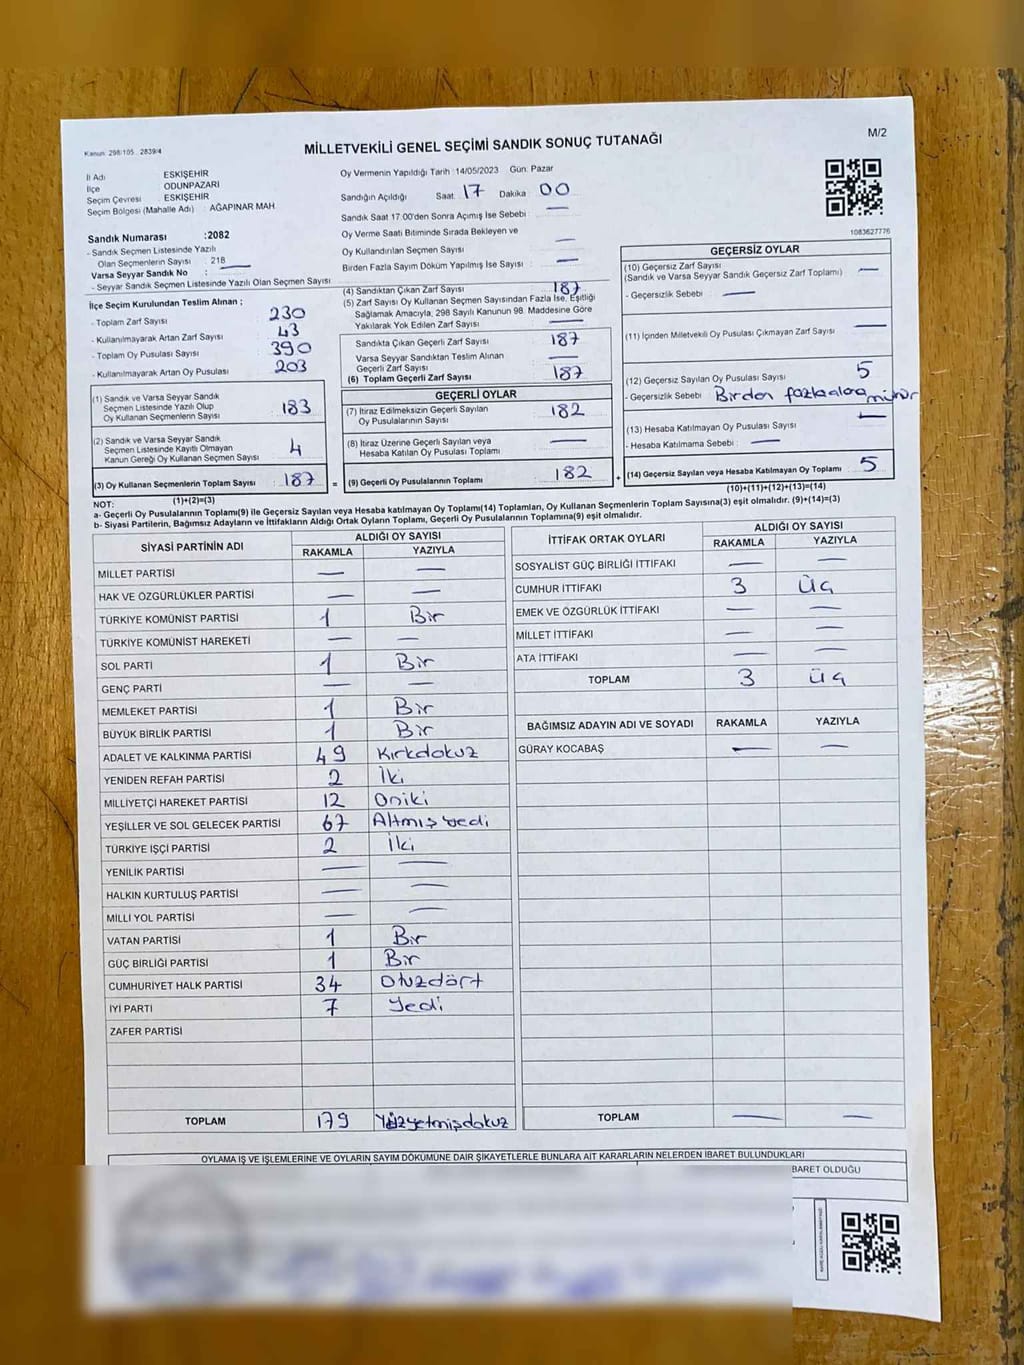 Kanun: 298/105 2839/4
MİLLETVEKİLİ GENEL SEÇİMİ SANDIK SONUÇ TUTANAĞI
M/2
İl Adı ESKİŞEHİR
İlçe ODUNPAZARI
Seçim Çevresi ESKİŞEHİR
Seçim Bölgesi (Mahalle Adı) : AĞAPINAR MAH.
Sandık Numarası :2082
- Sandık Seçmen Listesinde Yazılı
Olan Seçmenlerin Sayısı : 218
Varsa Seyyar Sandık No : —
- Seyyar Sandık Seçmen Listesinde Yazılı Olan Seçmen Sayısı
Oy Vermenin Yapıldığı Tarih :14/05/2023 Gün: Pazar
Sandığın Açıldığı Saat 17 Dakika 00
Sandık Saat 17.00'den Sonra Açımış İse Sebebi : —
Oy Verme Saati Bitiminde Sırada Bekleyen ve
Oy Kullandırılan Seçmen Sayısı : —
Birden Fazla Sayım Döküm Yapılmış İse Sayısı : —
1083627776
İlçe Seçim Kurulundan Teslim Alınan ;
- Toplam Zarf Sayısı : 230
- Kullanılmayarak Artan Zarf Sayısı : 43
- Toplam Oy Pusulası Sayısı : 390
- Kullanılmayarak Artan Oy Pusulası : 203
(1) Sandık ve Varsa Seyyar Sandık
Seçmen Listesinde Yazılı Olup
Oy Kullanan Seçmenlerin Sayısı : 183
(2) Sandık ve Varsa Seyyar Sandık
Seçmen Listesinde Kayıtlı Olmayan
Kanun Gereği Oy Kullanan Seçmen Sayısı : 4
(3) Oy Kullanan Seçmenlerin Toplam Sayısı : 187 =
(1)+(2)=(3)
(4) Sandıktan Çıkan Zarf Sayısı : 187
(5) Zarf Sayısı Oy Kullanan Seçmen Sayısından Fazla İse, Eşitliği
Sağlamak Amacıyla, 298 Sayılı Kanunun 98. Maddesine Göre
Yakılarak Yok Edilen Zarf Sayısı : —
Sandıkta Çıkan Geçerli Zarf Sayısı : 187
Varsa Seyyar Sandıktan Teslim Alınan
Geçerli Zarf Sayısı : —
(6) Toplam Geçerli Zarf Sayısı : 187
GEÇERLİ OYLAR
(7) İtiraz Edilmeksizin Geçerli Sayılan
Oy Pusulalarının Sayısı : 182
(8) İtiraz Üzerine Geçerli Sayılan veya
Hesaba Katılan Oy Pusulası Toplamı : —
(9) Geçerli Oy Pusulalarının Toplamı : 182 +
GEÇERSİZ OYLAR
(10) Geçersiz Zarf Sayısı : —
(Sandık ve Varsa Seyyar Sandık Geçersiz Zarf Toplamı)
- Geçersizlik Sebebi : —
(11) İçinden Milletvekili Oy Pusulası Çıkmayan Zarf Sayısı : —
(12) Geçersiz Sayılan Oy Pusulası Sayısı : 5
- Geçersizlik Sebebi : Birden fazla alana mühür
(13) Hesaba Katılmayan Oy Pusulası Sayısı : —
- Hesaba Katılmama Sebebi : —
(14) Geçersiz Sayılan veya Hesaba Katılmayan Oy Toplamı : 5
(10)+(11)+(12)+(13)=(14)
NOT:
a- Geçerli Oy Pusulaları Toplamı(9) ile Geçersiz Sayılan veya Hesaba katılmayan Oy Toplamı(14) Toplamları, Oy Kullanan Seçmenlerin Toplam Sayısına(3) eşit olmalıdır. (9)+(14)=(3)
b- Siyasi Partilerin, Bağımsız Adayların ve İttifakların Aldığı Ortak Oyların Toplamı, Geçerli Oy Pusulalarının Toplamına(9) eşit olmalıdır.
SİYASİ PARTİNİN ADI ALDIĞI OY SAYISI
RAKAMLA YAZIYLA
MİLLET PARTİSİ — —
HAK VE ÖZGÜRLÜKLER PARTİSİ — —
TÜRKİYE KOMÜNİST PARTİSİ 1 Bir
TÜRKİYE KOMÜNİST HAREKETİ — —
SOL PARTİ 1 Bir
GENÇ PARTİ — —
MEMLEKET PARTİSİ 1 Bir
BÜYÜK BİRLİK PARTİSİ 1 Bir
ADALET VE KALKINMA PARTİSİ 49 Kırkdokuz
YENİDEN REFAH PARTİSİ 2 İki
MİLLİYETÇİ HAREKET PARTİSİ 12 Oniki
YEŞİLLER VE SOL GELECEK PARTİSİ 67 Altmış yedi
TÜRKİYE İŞÇİ PARTİSİ 2 İki
YENİLİK PARTİSİ — —
HALKIN KURTULUŞ PARTİSİ — —
MİLLİ YOL PARTİSİ — —
VATAN PARTİSİ 1 Bir
GÜÇ BİRLİĞİ PARTİSİ 1 Bir
CUMHURİYET HALK PARTİSİ 34 Otuzdört
İYİ PARTİ 7 Yedi
ZAFER PARTİSİ
TOPLAM 179 Yüzyetmişdokuz
İTTİFAK ORTAK OYLARI ALDIĞI OY SAYISI
RAKAMLA YAZIYLA
SOSYALİST GÜÇ BİRLİĞİ İTTİFAKI — —
CUMHUR İTTİFAKI 3 Üç
EMEK VE ÖZGÜRLÜK İTTİFAKI — —
MİLLET İTTİFAKI — —
ATA İTTİFAKI — —
TOPLAM 3 Üç
BAĞIMSIZ ADAYIN ADI VE SOYADI RAKAMLA YAZIYLA
GÜRAY KOCABAŞ — —
TOPLAM — —
OYLAMA İŞ VE İŞLEMLERİNE VE OYLARIN SAYIM DÖKÜMÜNE DAİR ŞİKAYETLERLE BUNLARA AİT KARARLARIN NELERDEN İBARET BULUNDUKLARI
BARET OLDUĞU